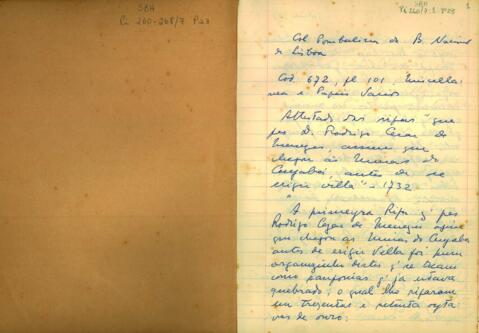 SBH
Pi 260-268/7 P23
SBH
Pi 260/7:1 P23
1
Col Pombalina da B. Nacional
de Lisboa
Cod. 672, fl 101, Miscella-
nea e Papeis Varios
Attestado das rifas "que
pos D. Rodrigo Cesar de
Menezes, assim que
chegou às Minas do
Cuyabá, antes de se
erigir villa" - 1732
"A primeyra Rifa q' pos
Rodrigo Cezar de Menezes assim
que chegou as Minas do Cuyaba
antes de erigir Villa foi hum
destes q' se tocam
como q' ja estava
quebrado; o qual lho rifaram
em trezentas e setenta oyta-
vas de ouro;